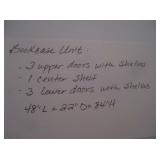 Bookcase Unit:
- 3 upper doors with shelves
- 1 center shelf
- 3 lower doors with shelves
48"L = 22"D = 84"H